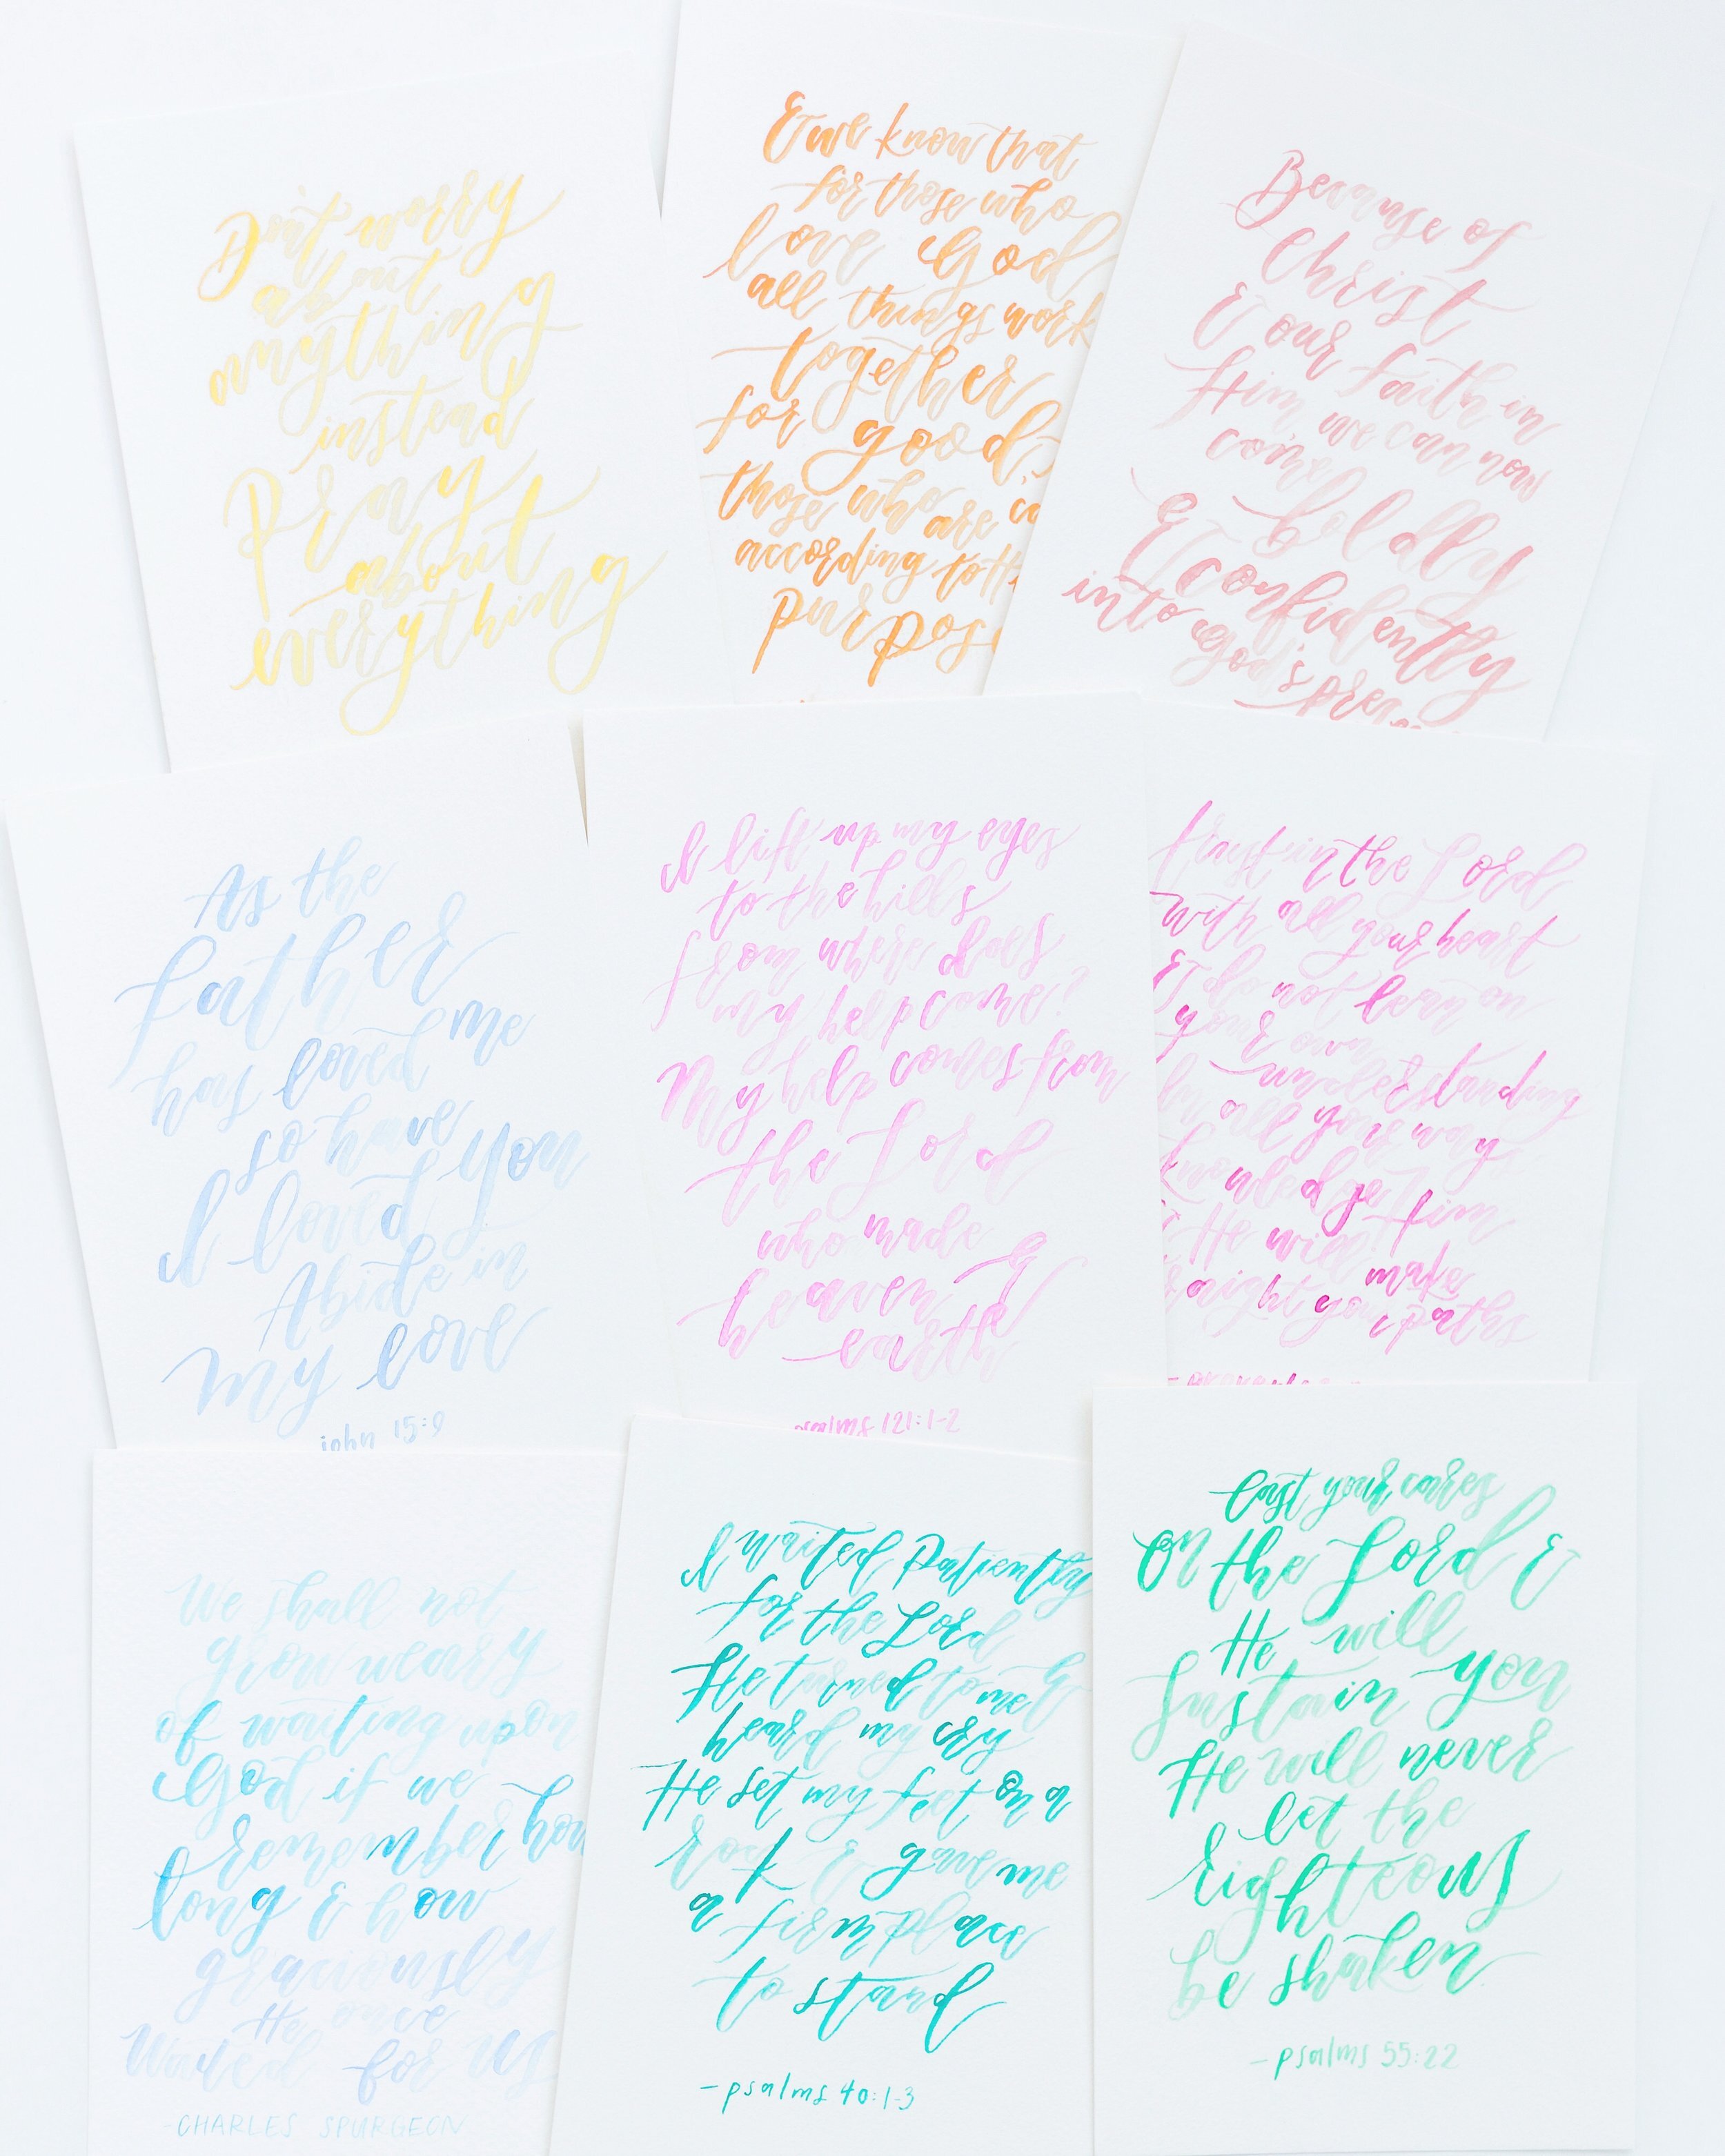 Don't worry
about
anything
instead
Pray
about
everything
& we know that
for those who
love God
all things work
together
for good
those who are
according to
purpose
Because of
Christ
& our faith in
Him we can now
come
boldly
& confidently
into God's
As the
Father
has loved me
so have
I loved you
Abide in
my love
john 15:9
I lift up my eyes
to the hills
from where does
my help come?
My help comes from
the Lord
who made
heaven &
earth
psalms 121:1-2
trust in the Lord
with all your heart
& do not lean on
your own
understanding
in all your way
knowledge Him
He will make
straight your paths
We shall not
grow weary
of waiting upon
God if we
remember how
long & how
graciously
He once
Waited for us
-CHARLES SPURGEON
I waited Patiently
for the Lord
He turned to me &
heard my cry
He set my feet on a
rock & gave me
a firm place
to stand
-psalms 40:1-3
Cast your cares
on the Lord &
He will
sustain you
He will never
let the
righteous
be shaken
-psalms 55:22